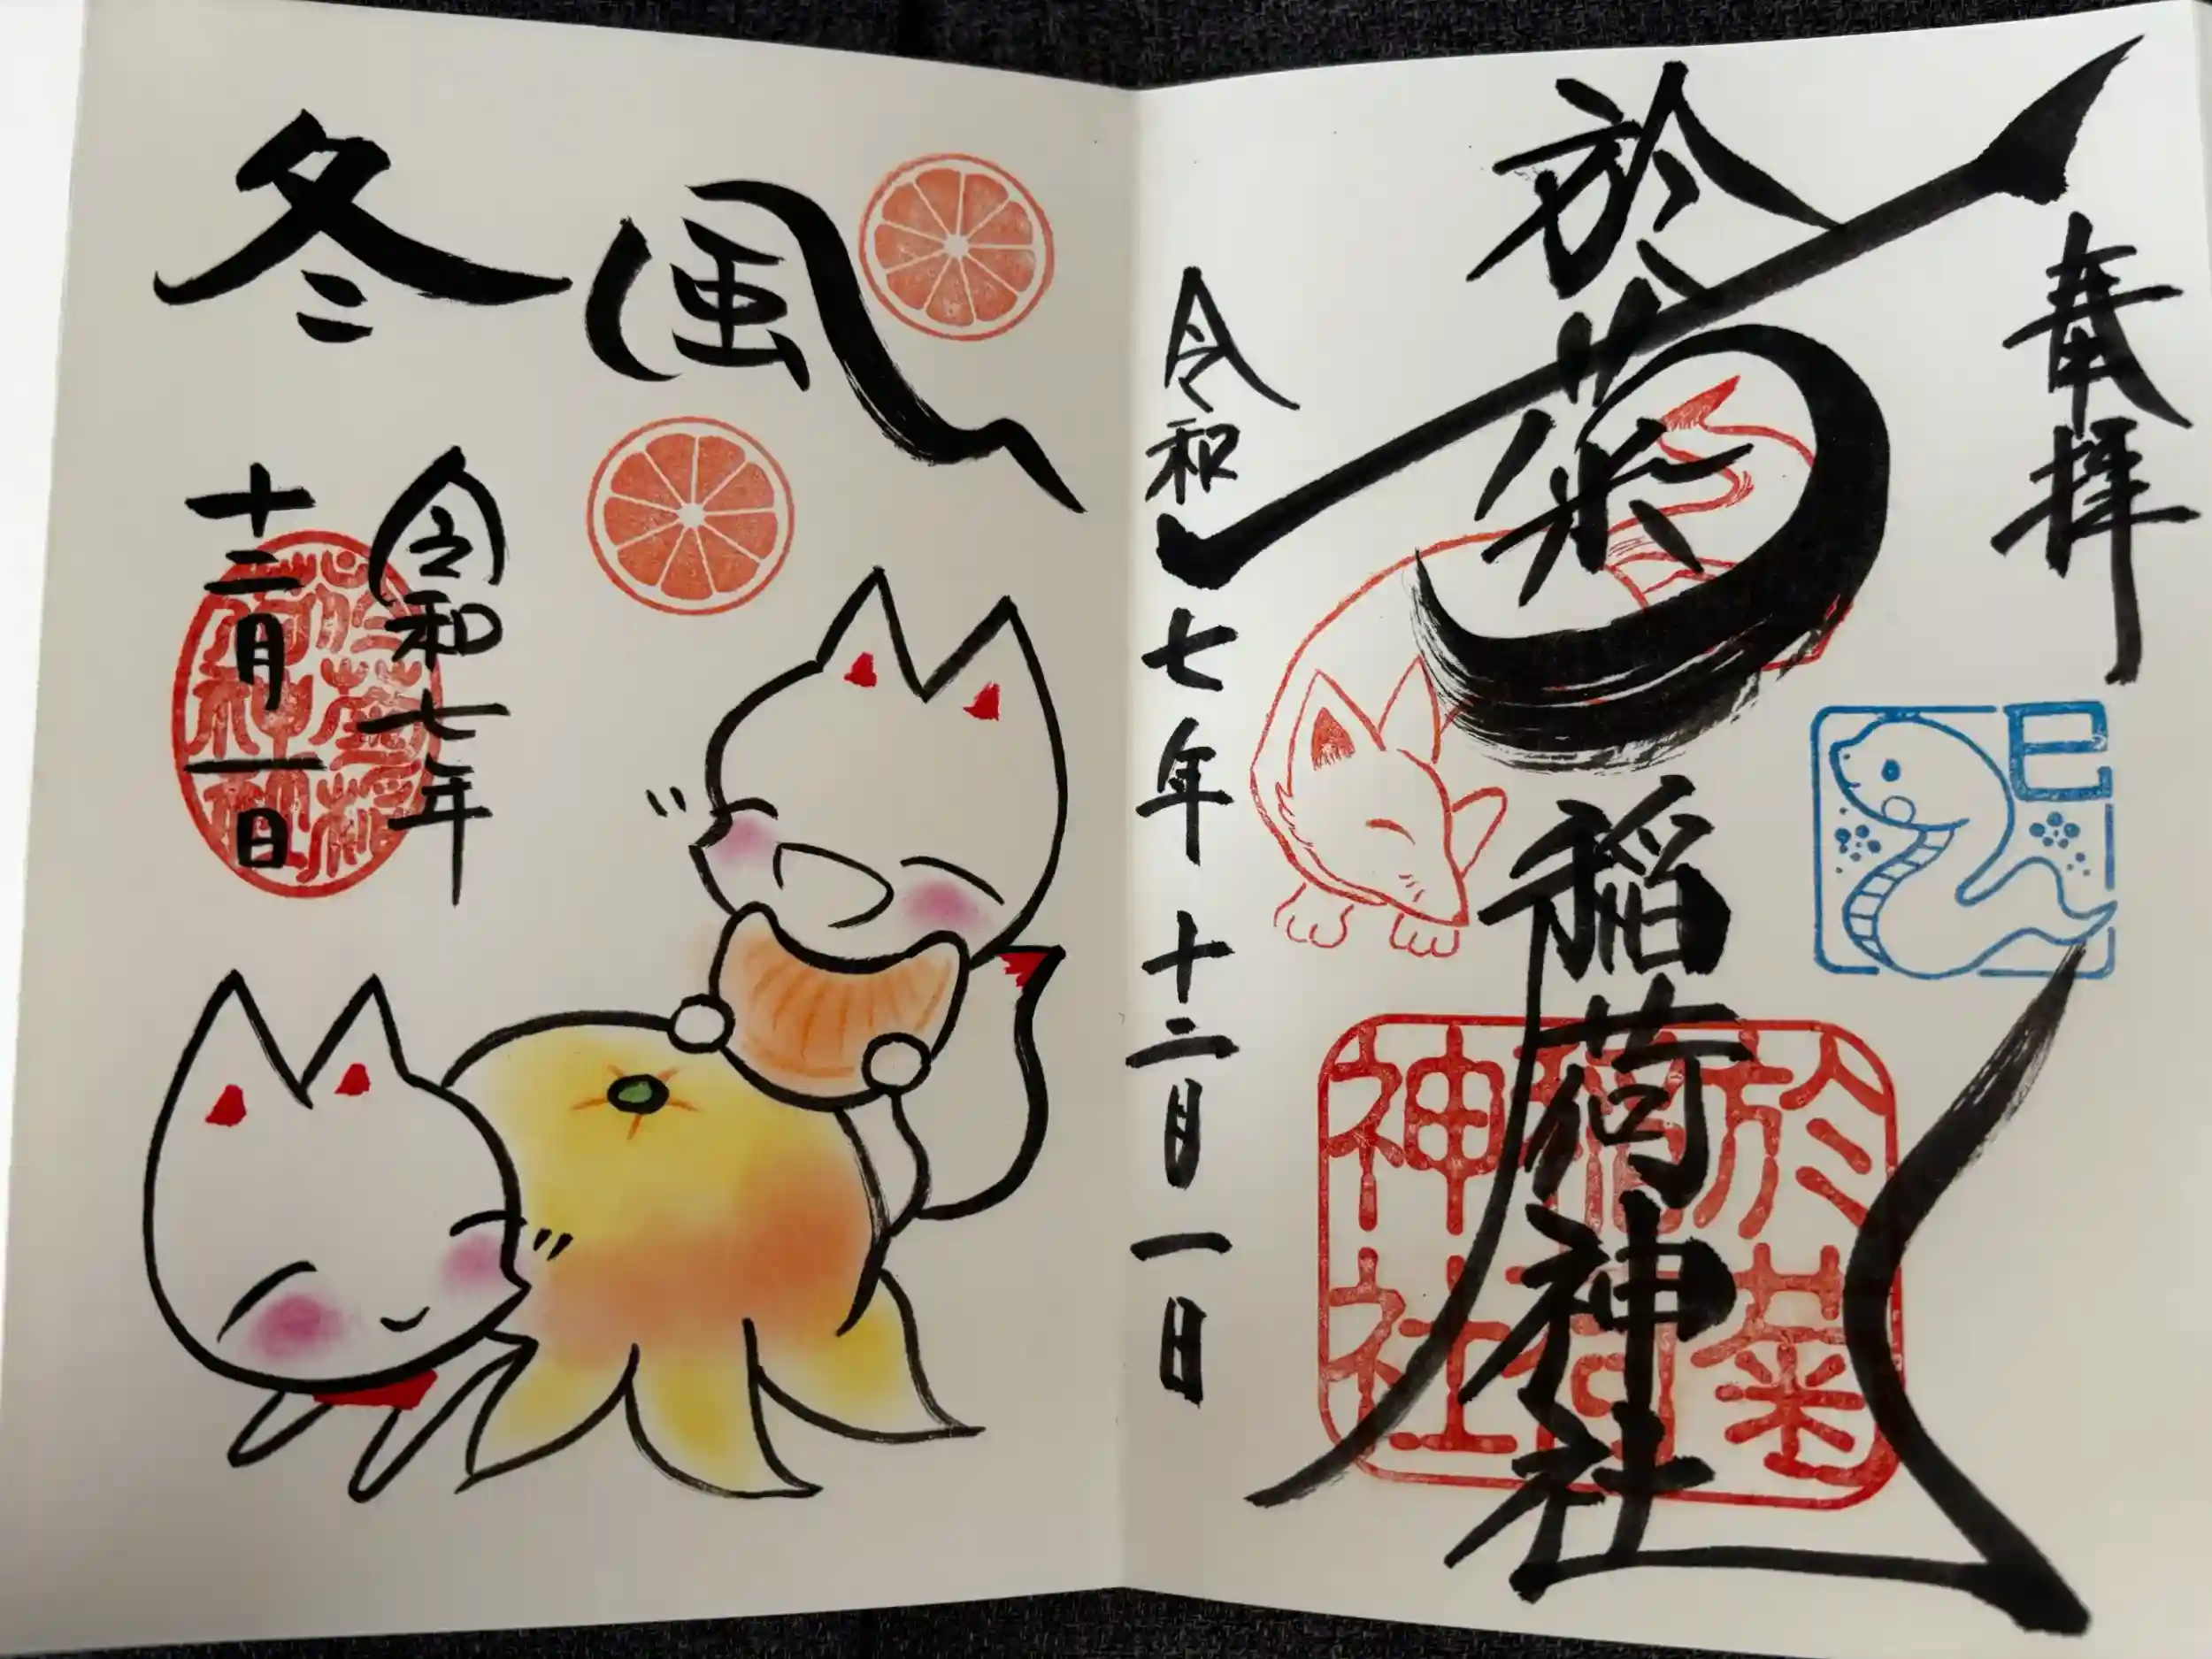 奉拝
於菊稲荷神社
令和七年十二月一日
巳
於菊
稲荷
神社
風
冬
令和七年
十二月一日